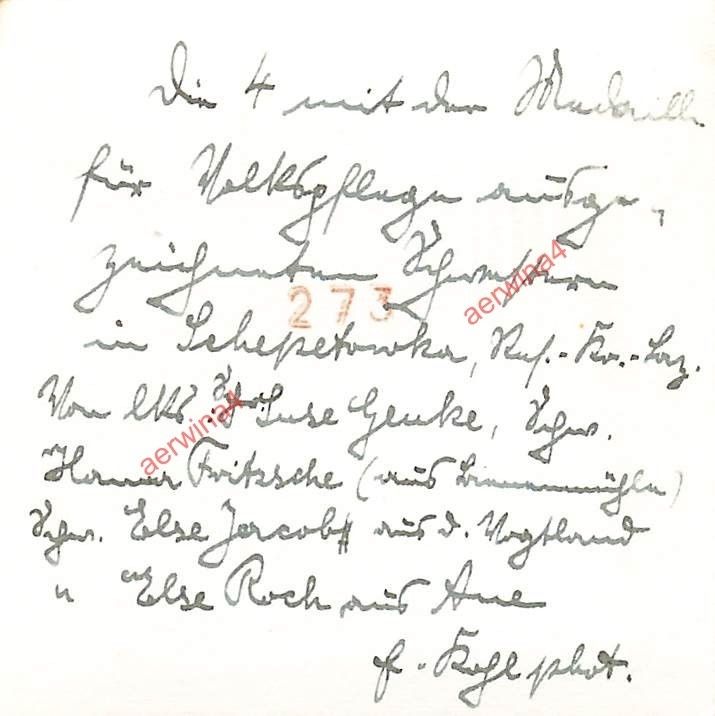 Die 4 mit der Medaille
für Volkspflege ausge-
zeichneten Schwestern
273
in Schepetowka, Res.-Kr.-Laz.
Von lks: Schw. Luse Genke, Schw.
Hanna Fritzsche (aus Bienenmühle)
Schw. Else Jacob aus d. Vogtland
" Else Roch aus Aue
phot.
aerwina4
aerwina4